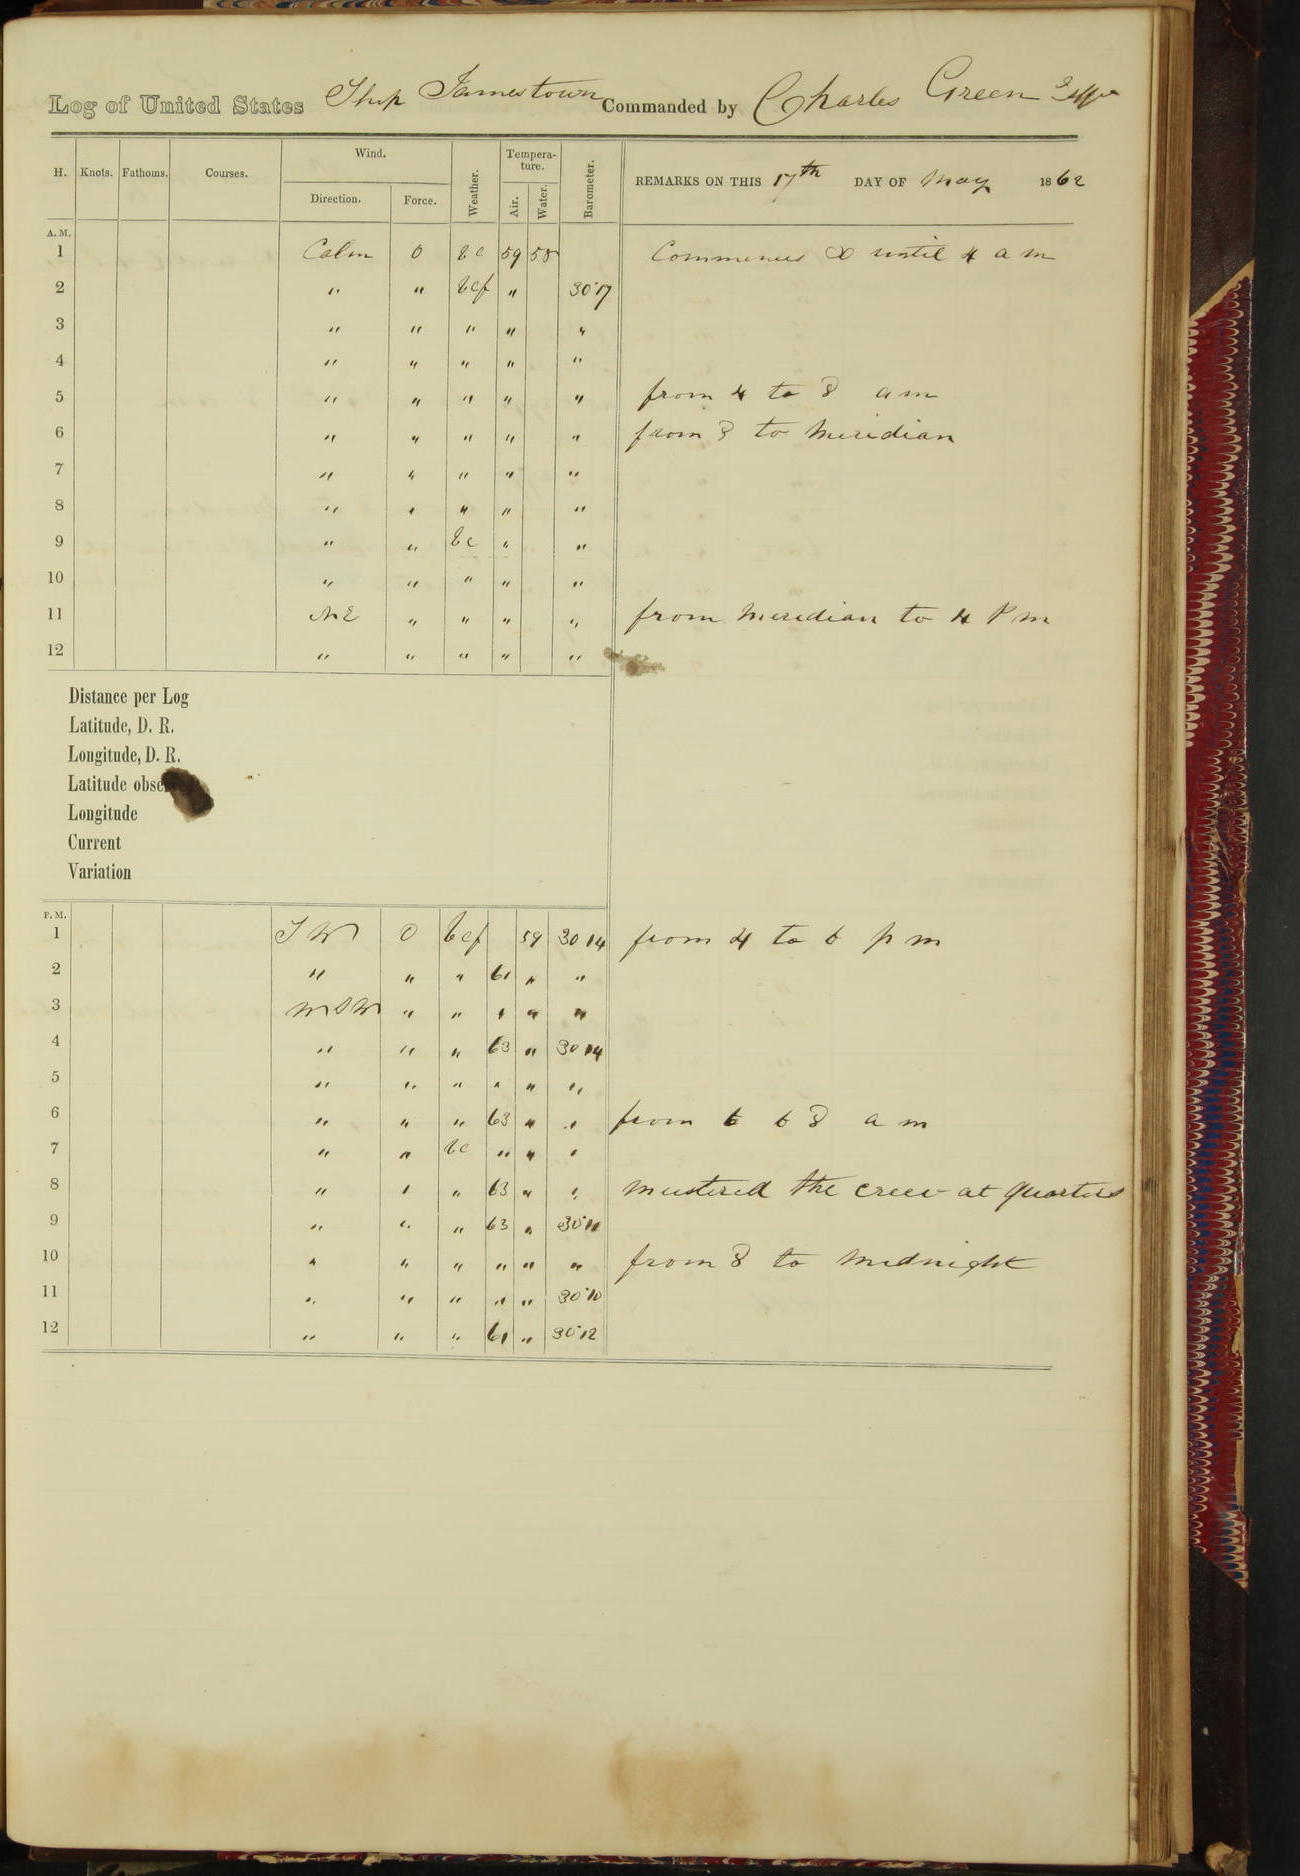 Log of United States Ship Jamestown Commanded by Charles Green
H. Knots. Fathoms. Courses. Wind. Direction. Force. Weather. Tempera-ture. Air. Water. Barometer. REMARKS ON THIS 17th DAY OF May 1862
A.M.
1 Calm 0 bc 59 58 Commences until 4 a m
2 " " bcf " 30·17
3 " " " " "
4 " " " " "
5 " " " " " from 4 to 8 a m
6 " " " " " from 8 to Meridian
7 " " " " "
8 " " " " "
9 " " bc " "
10 " " " " "
11 NE " " " " from Meridian to 4 P m
12 " " " " "
Distance per Log
Latitude, D. R.
Longitude, D. R.
Latitude obse
Longitude
Current
Variation
P.M.
1 S W 0 bcf 59 30 14 from 4 to 6 p m
2 " " " 61 " "
3 WSW " " " " "
4 " " " 63 " 30 14
5 " " " " " "
6 " " " 63 " " from 6 t 8 a m
7 " " bc " " "
8 " " " 63 " " mustered the crew at quarters
9 " " " 63 " 30·11
10 " " " " " " from 8 to Midnight
11 " " " " " 30·10
12 " " " 61 " 30·12